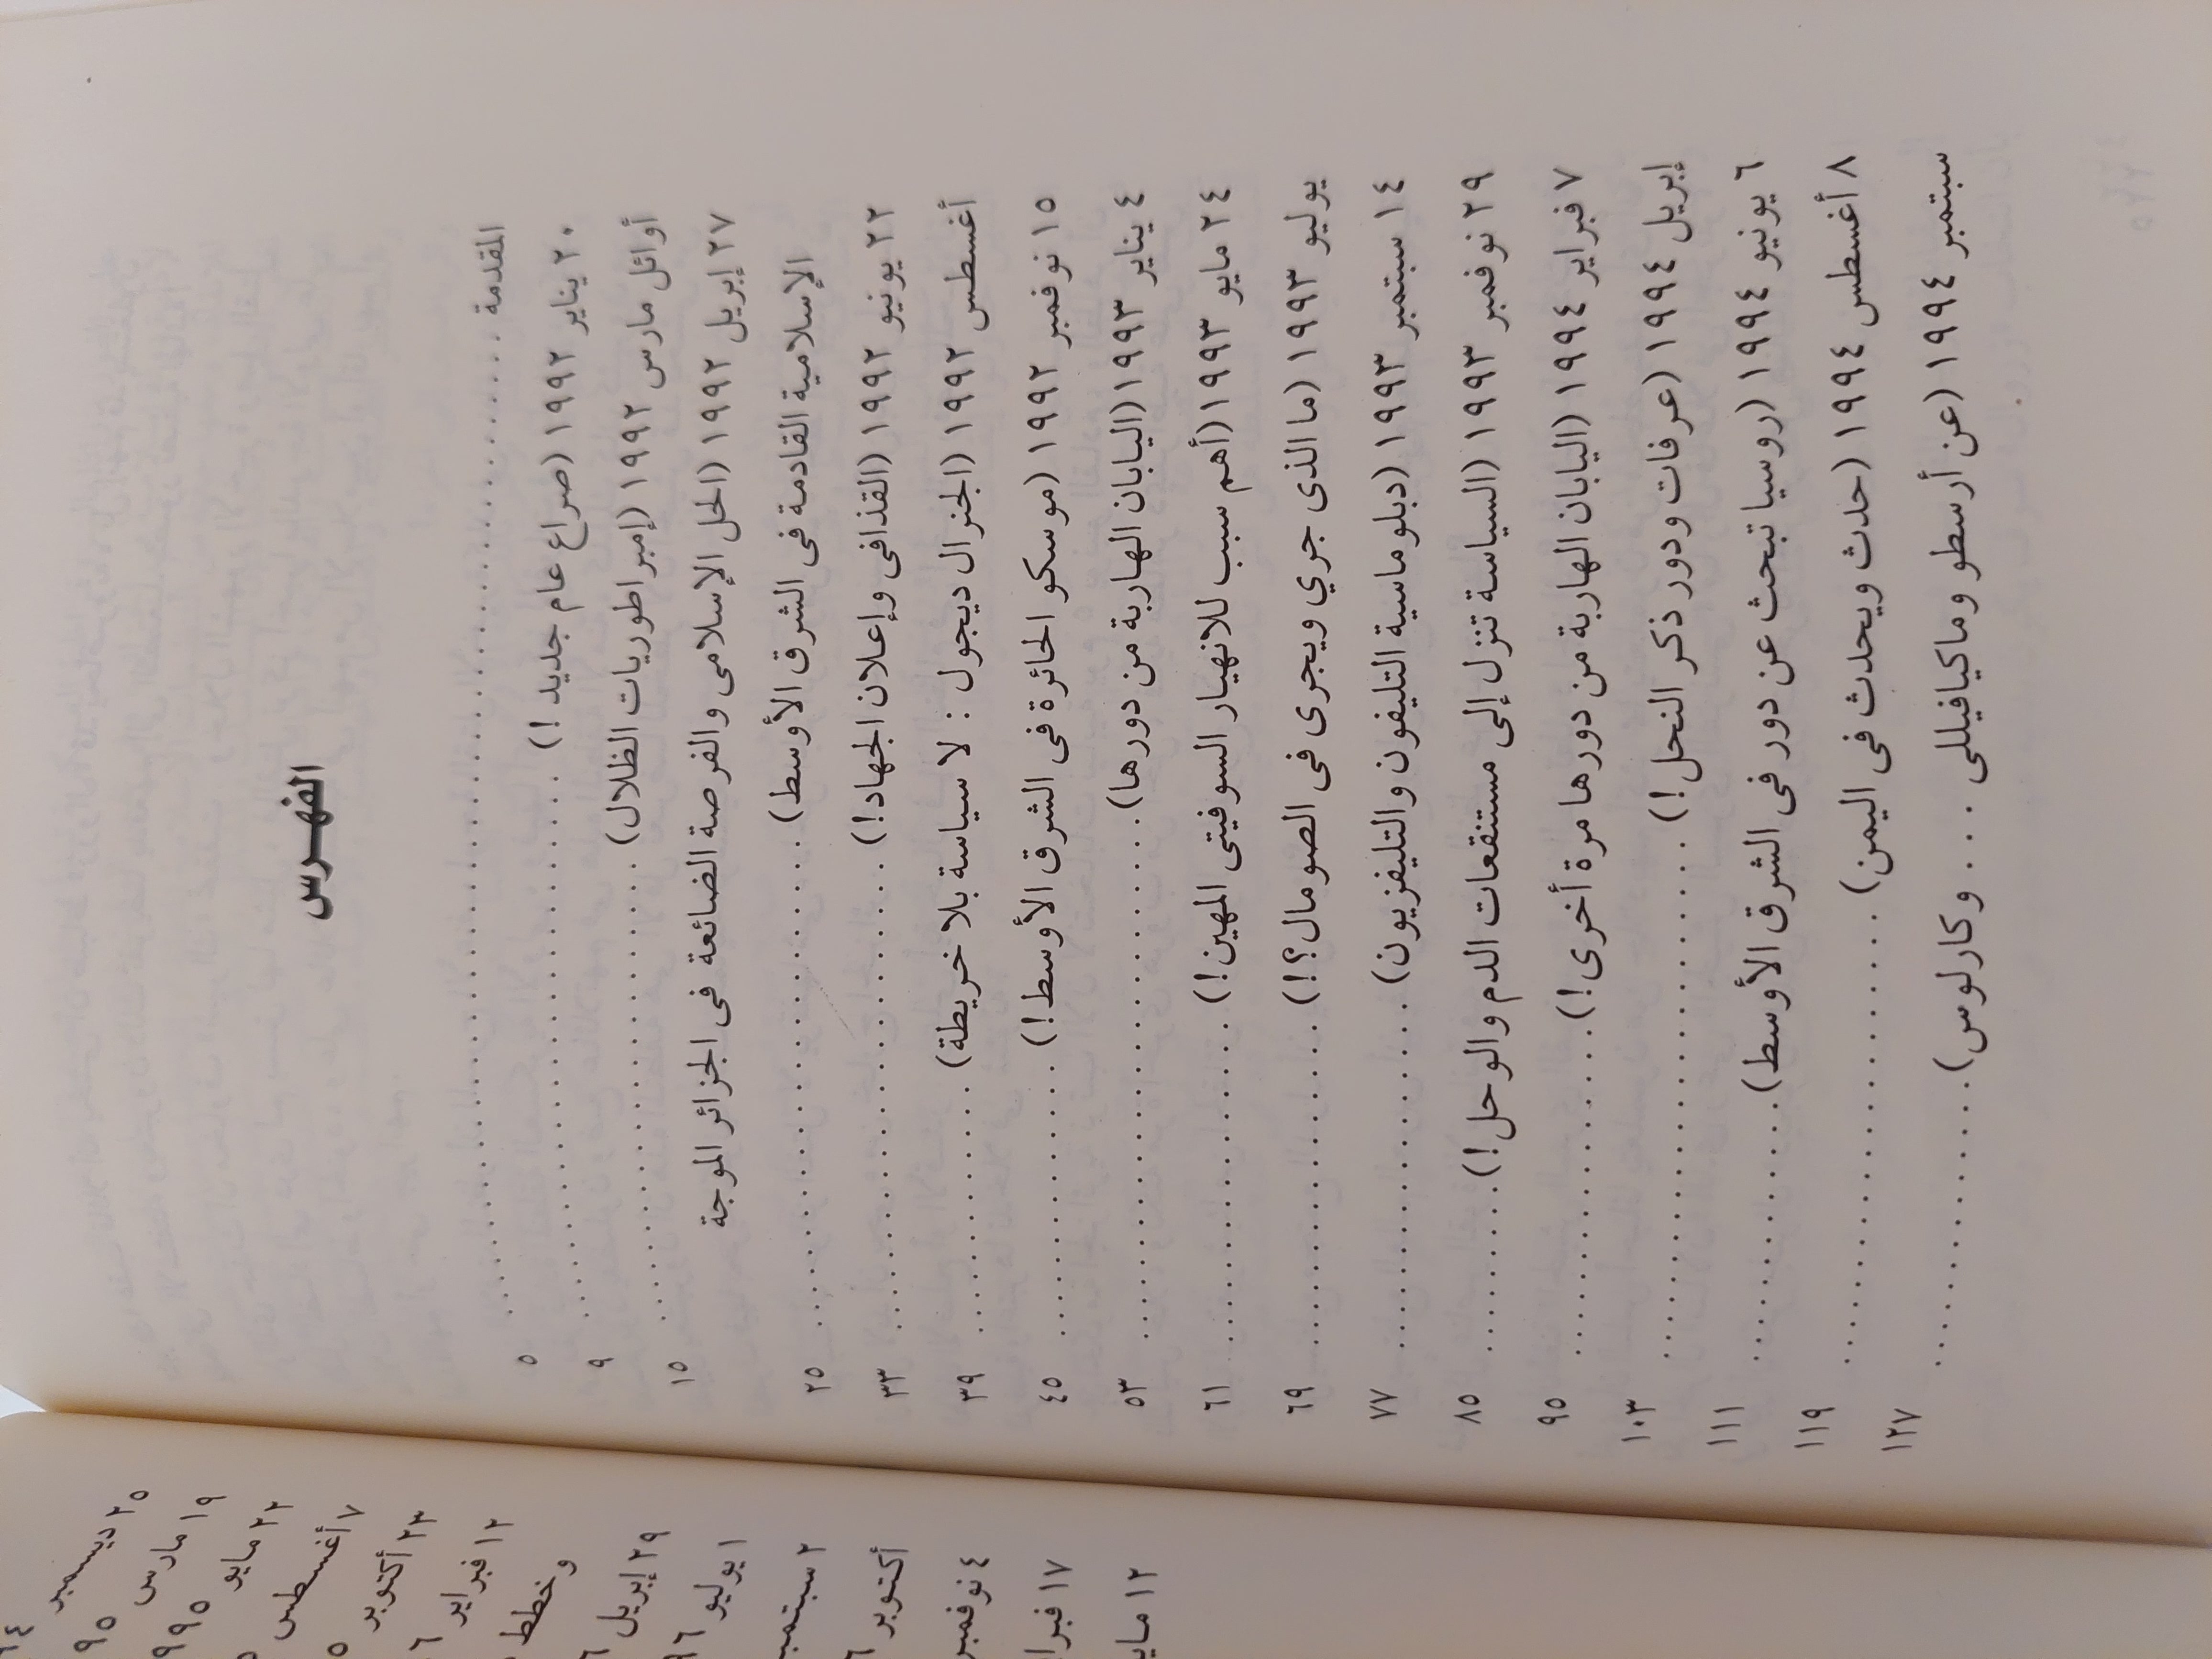 الفهـرس
المقدمة ........................................ ٥
٢٠ يناير ١٩٩٢ (صراع عام جديد !) ........................ ٩
أوائل مارس ١٩٩٢ (إمبراطوريات الظلال) .................... ١٥
٢٧ إبريل ١٩٩٢ (الحل الإسلامى والفرصة الضائعة فى الجزائر الموجة
الإسلامية القادمة فى الشرق الأوسط) ..................... ٢٥
٢٢ يونيو ١٩٩٢ (القذافى وإعلان الجهاد!) .................... ٣٣
أغسطس ١٩٩٢ (الجنرال ديجول : لا سياسة بلا خريطة) ............ ٣٩
١٥ نوفمبر ١٩٩٢ (موسكو الحائرة فى الشرق الأوسط!) ............ ٤٥
٤ يناير ١٩٩٣ (اليابان الهاربة من دورها) .................... ٥٣
٢٤ مايو ١٩٩٣ (أهم سبب للانهيار السوفيتى المهين!) ............ ٦١
يوليو ١٩٩٣ (ما الذى جري ويجرى فى الصومال؟!) ............ ٦٩
١٤ سبتمبر ١٩٩٣ (دبلوماسية التليفون والتليفزيون) ............ ٧٧
٢٩ نوفمبر ١٩٩٣ (السياسة تنزل إلى مستنقعات الدم والوحل!) ........ ٨٥
٧ فبراير ١٩٩٤ (اليابان الهاربة من دورها مرة أخرى!) ............ ٩٥
إبريل ١٩٩٤ (عرفات ودور ذكر النحل!) .................... ١٠٣
٦ يونيو ١٩٩٤ (روسيا تبحث عن دور فى الشرق الأوسط) ............ ١١١
٨ أغسطس ١٩٩٤ (حدث ويحدث فى اليمن) .................... ١١٩
سبتمبر ١٩٩٤ (عن أرسطو وماكيافيللى ... وكارلوس) ............ ١٢٧
٢٥ ديسمبر
١٩ مارس
٢٢ مايو
٧ أغسطس
٢٣ أكتوبر
١٢ فبراير
وخطط
٢٩ إبريل
١ يوليو
٢ سبتمبر
أكتوبر
٤ نوفمبر